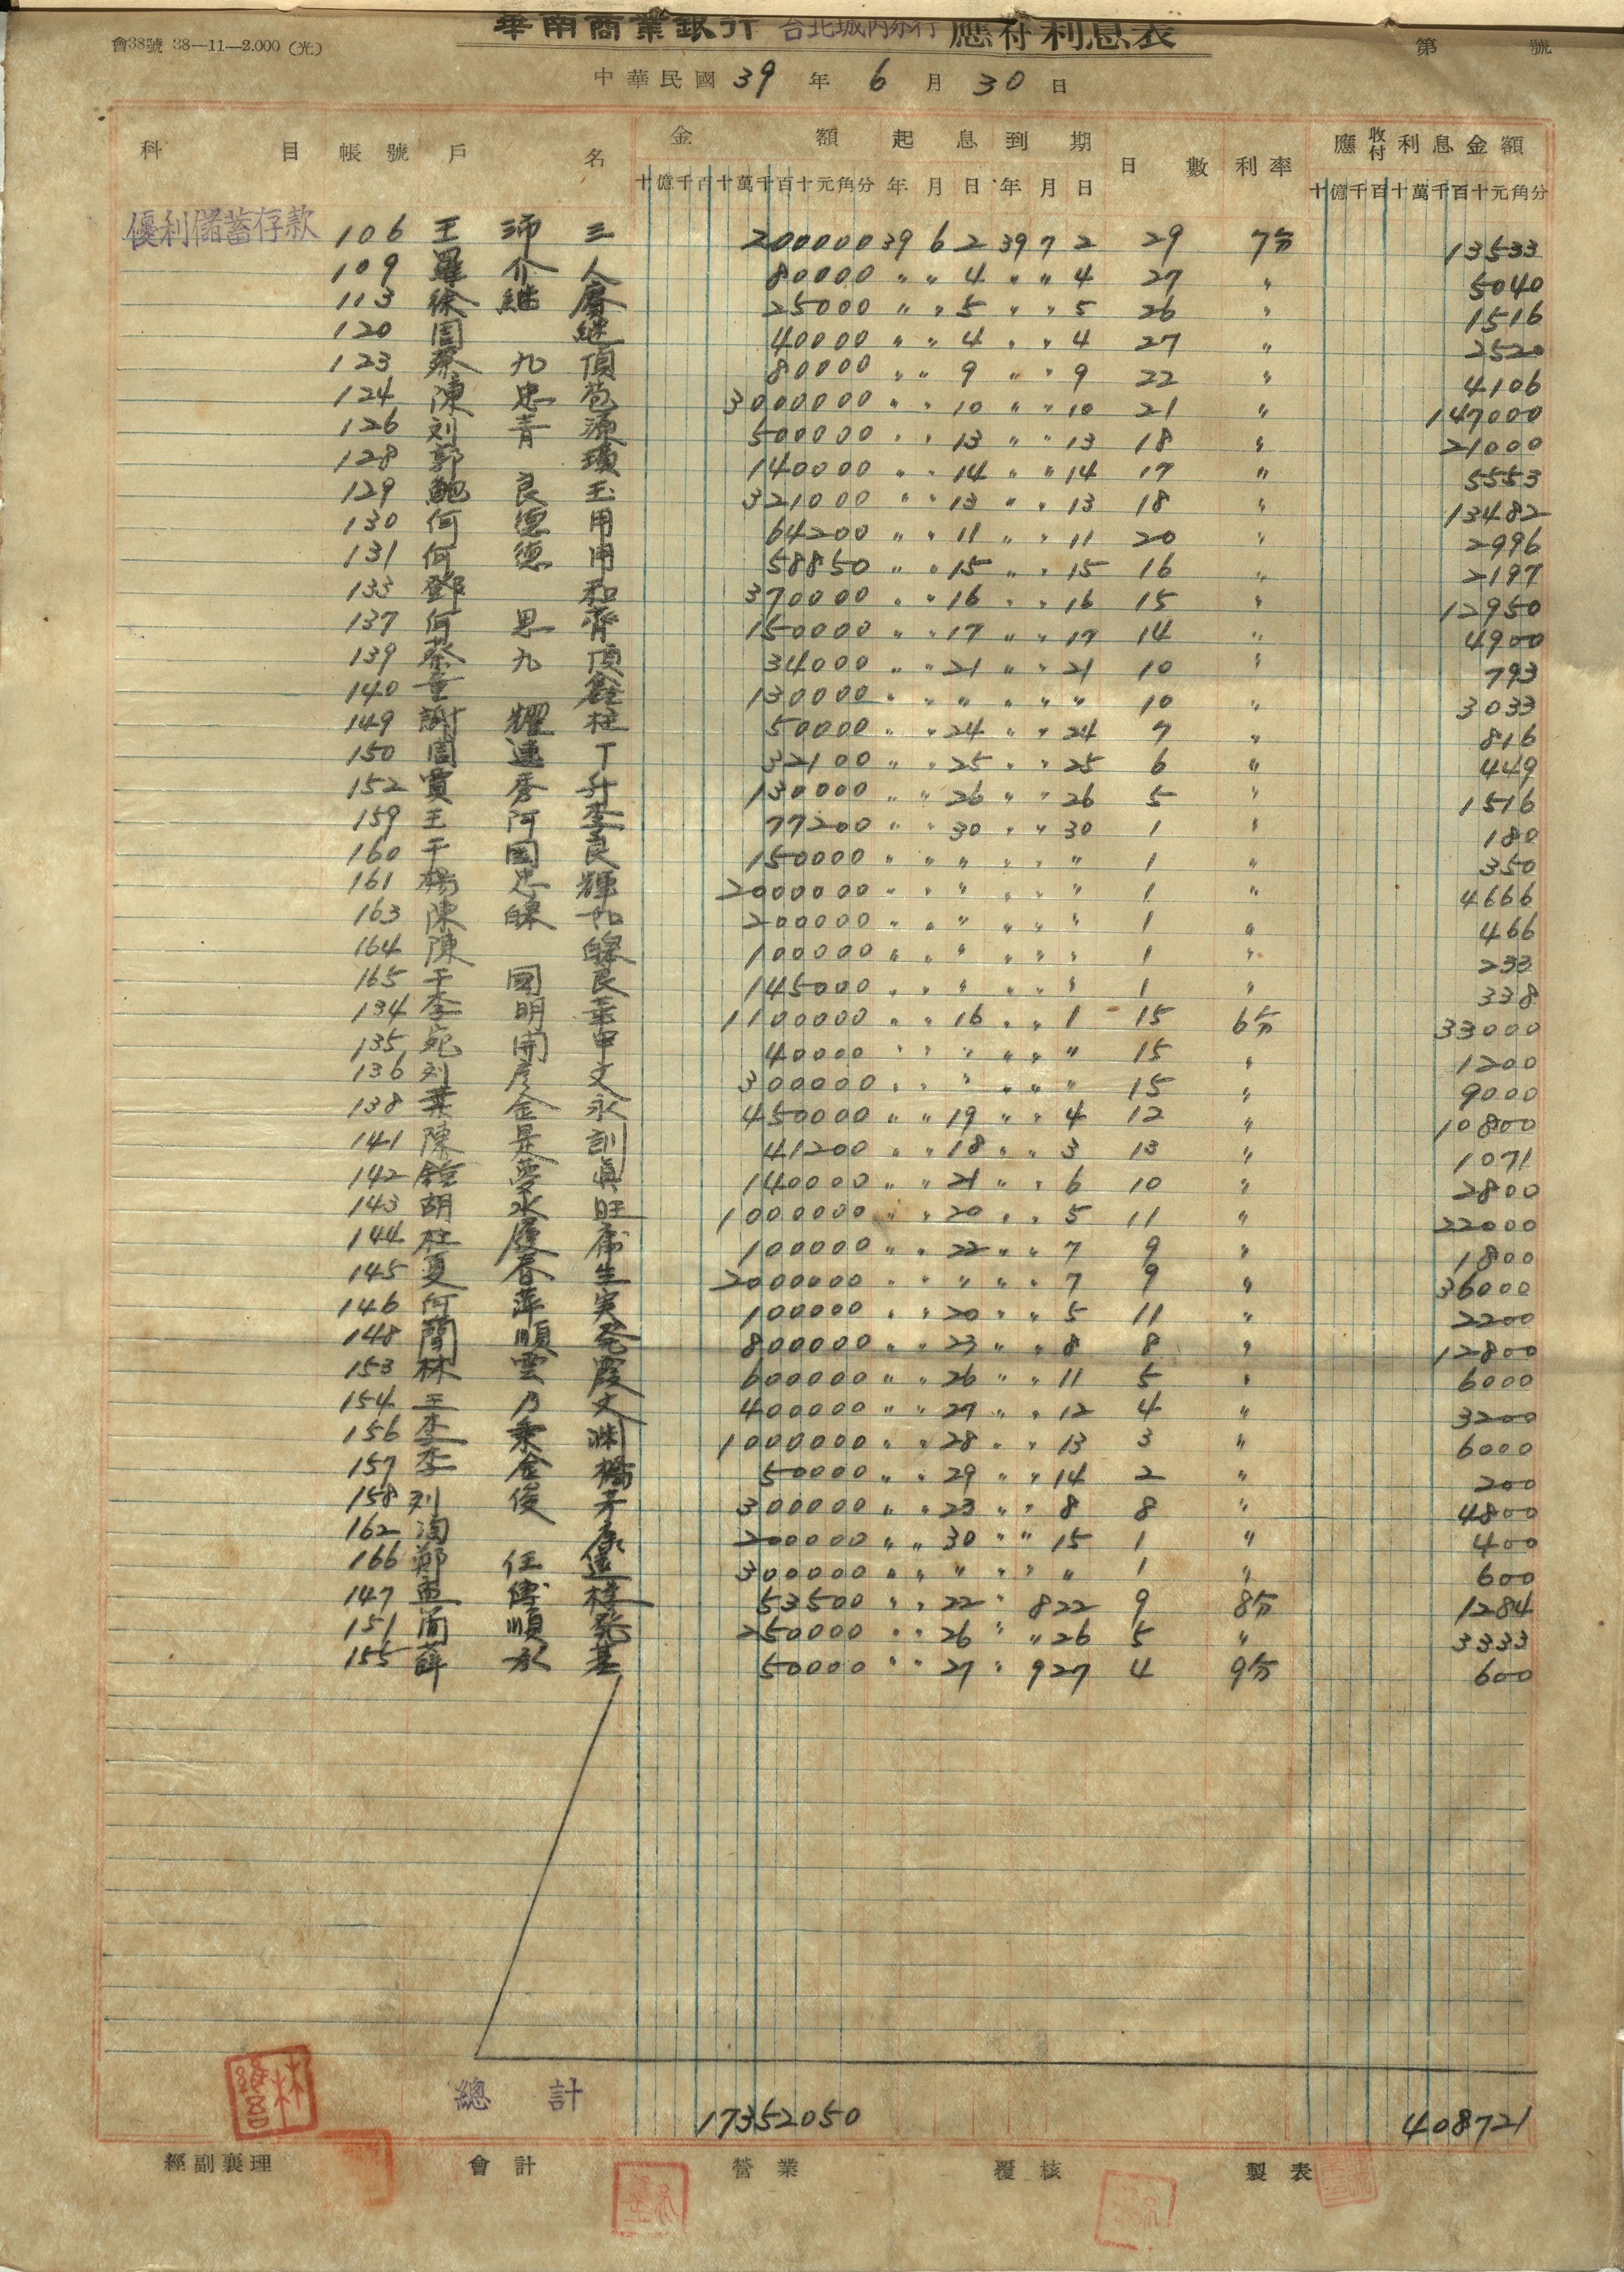 華南商業銀行 台北城內分行 應付利息表
會38號 38—11—2.000(光)
第 號
中華民國 39 年 6 月 30 日
科 目 帳號 戶 名 金 額 起 息 到 期 日 數 利率 應收付利息金額
十億千百十萬千百十元角分 年 月 日 年 月 日 十億千百十萬千百十元角分
優利儲蓄存款 106 王 沛 三 200000 39 6 2 39 7 2 29 7分 13533
109 羅 介 人 80000 〃 〃 4 〃 〃 4 27 〃 5040
113 徐 繼 25000 〃 〃 5 〃 〃 5 26 〃 1516
120 周 継 40000 〃 〃 4 〃 〃 4 27 〃 2520
123 蔡 九 頂 80000 〃 〃 9 〃 〃 9 22 〃 4106
124 陳 忠 苞 3000000 〃 〃 10 〃 〃 10 21 〃 147000
126 刘 青 源 500000 〃 〃 13 〃 〃 13 18 〃 21000
128 郭 瓊 140000 〃 〃 14 〃 〃 14 17 〃 5553
129 鮑 良 玉 321000 〃 〃 13 〃 〃 13 18 〃 13482
130 何 德 用 64200 〃 〃 11 〃 〃 11 20 〃 2996
131 何 德 用 58850 〃 〃 15 〃 〃 15 16 〃 2197
133 鄧 和 370000 〃 〃 16 〃 〃 16 15 〃 12950
137 何 思 齊 150000 〃 〃 17 〃 〃 17 14 〃 4900
139 蔡 九 頂 34000 〃 〃 21 〃 〃 21 10 〃 793
140 童 130000 〃 〃 〃 〃 〃 〃 10 〃 3033
149 謝 耀 柱 50000 〃 〃 24 〃 〃 24 7 〃 816
150 周 連 丁 32100 〃 〃 25 〃 〃 25 6 〃 449
152 賈 秀 升 130000 〃 〃 26 〃 〃 26 5 〃 1516
159 王 阿 李 77200 〃 〃 30 〃 〃 30 1 〃 180
160 于 國 良 150000 〃 〃 〃 〃 〃 〃 1 〃 350
161 楊 忠 輝 2000000 〃 〃 〃 〃 〃 〃 1 〃 4666
163 陳 皞 200000 〃 〃 〃 〃 〃 〃 1 〃 466
164 陳 皞 100000 〃 〃 〃 〃 〃 〃 1 〃 233
165 于 國 良 145000 〃 〃 〃 〃 〃 〃 1 〃 338
134 李 明 華 1100000 〃 〃 16 〃 〃 1 15 6分 33000
135 宛 開 甲 40000 〃 〃 〃 〃 〃 〃 15 〃 1200
136 刘 彦 文 300000 〃 〃 〃 〃 〃 〃 15 〃 9000
138 葉 金 永 450000 〃 〃 19 〃 〃 4 12 〃 10800
141 陳 是 訓 41200 〃 〃 18 〃 〃 3 13 〃 1071
142 夢 真 140000 〃 〃 21 〃 〃 6 10 〃 2800
143 胡 水 旺 1000000 〃 〃 20 〃 〃 5 11 〃 22000
144 杜 履 100000 〃 〃 22 〃 〃 7 9 〃 1800
145 夏 春 生 2000000 〃 〃 〃 〃 〃 7 9 〃 36000
146 何 萍 实 100000 〃 〃 20 〃 〃 5 11 〃 2200
148 簡 順 発 800000 〃 〃 23 〃 〃 8 8 〃 12800
153 林 雲 霞 600000 〃 〃 26 〃 〃 11 5 〃 6000
154 王 乃 文 400000 〃 〃 27 〃 〃 12 4 〃 3200
156 李 秉 淵 1000000 〃 〃 28 〃 〃 13 3 〃 6000
157 李 金 橋 50000 〃 〃 29 〃 〃 14 2 〃 200
158 刘 俊 才 300000 〃 〃 23 〃 〃 8 8 〃 4800
162 陶 康 200000 〃 〃 30 〃 〃 15 1 〃 400
166 鄭 任 遠 300000 〃 〃 〃 〃 〃 〃 1 〃 600
147 孟 傳 桂 53500 〃 〃 22 〃 8 22 9 8分 1284
151 簡 順 発 250000 〃 〃 26 〃 〃 26 5 〃 3333
155 薛 承 基 50000 〃 〃 27 〃 9 27 4 9分 600
總 計 17352050 408721
林維吾
經副襄理 會計 營業 覆核 製表